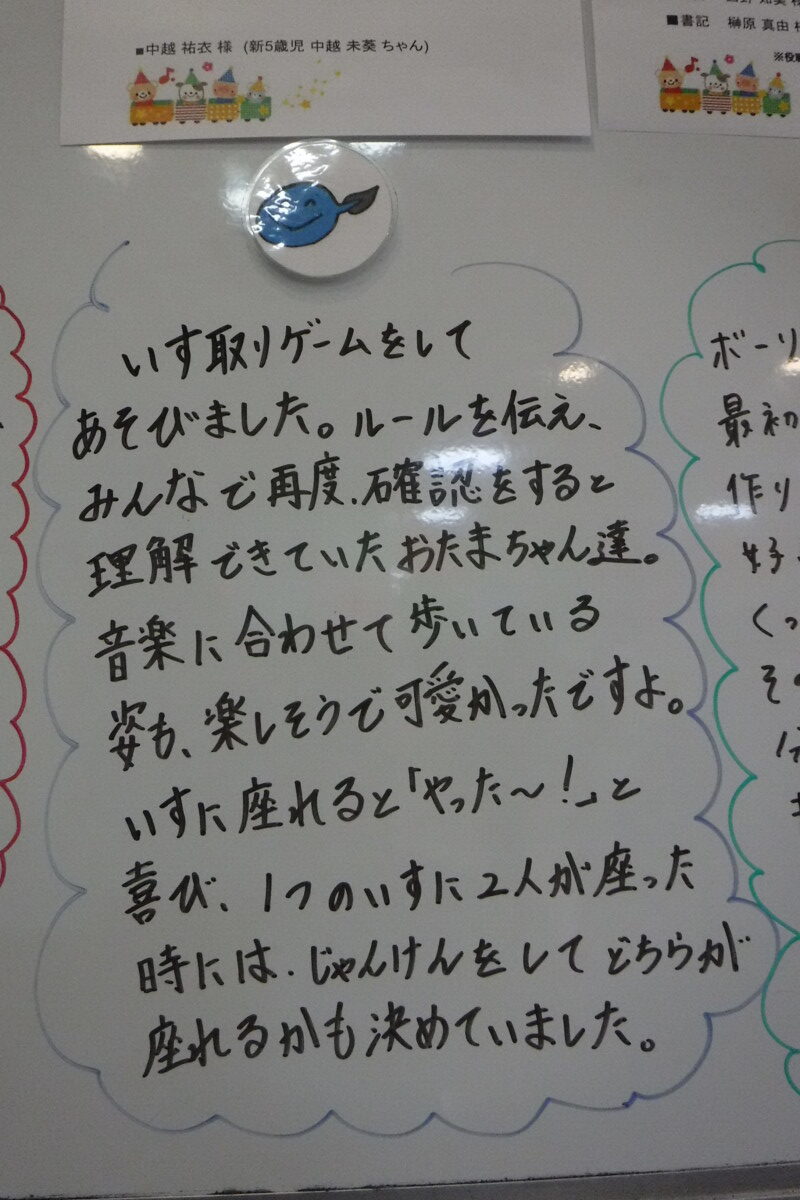 ■中越 祐衣 様 (新5歳児 中越 未葵 ちゃん)
■書記 榊原 真由
※役
いす取りゲームをして
あそびました。ルールを伝え、
みんなで再度、確認をすると
理解できていたおたまちゃん達。
音楽に合わせて歩いている
姿も、楽しそうで可愛かったですよ。
いすに座れると「やった～!」と
喜び、1つのいすに2人が座った
時には、じゃんけんをしてどちらが
座れるかも決めていました。
ボーリ
最初
作り
好
くっ
その